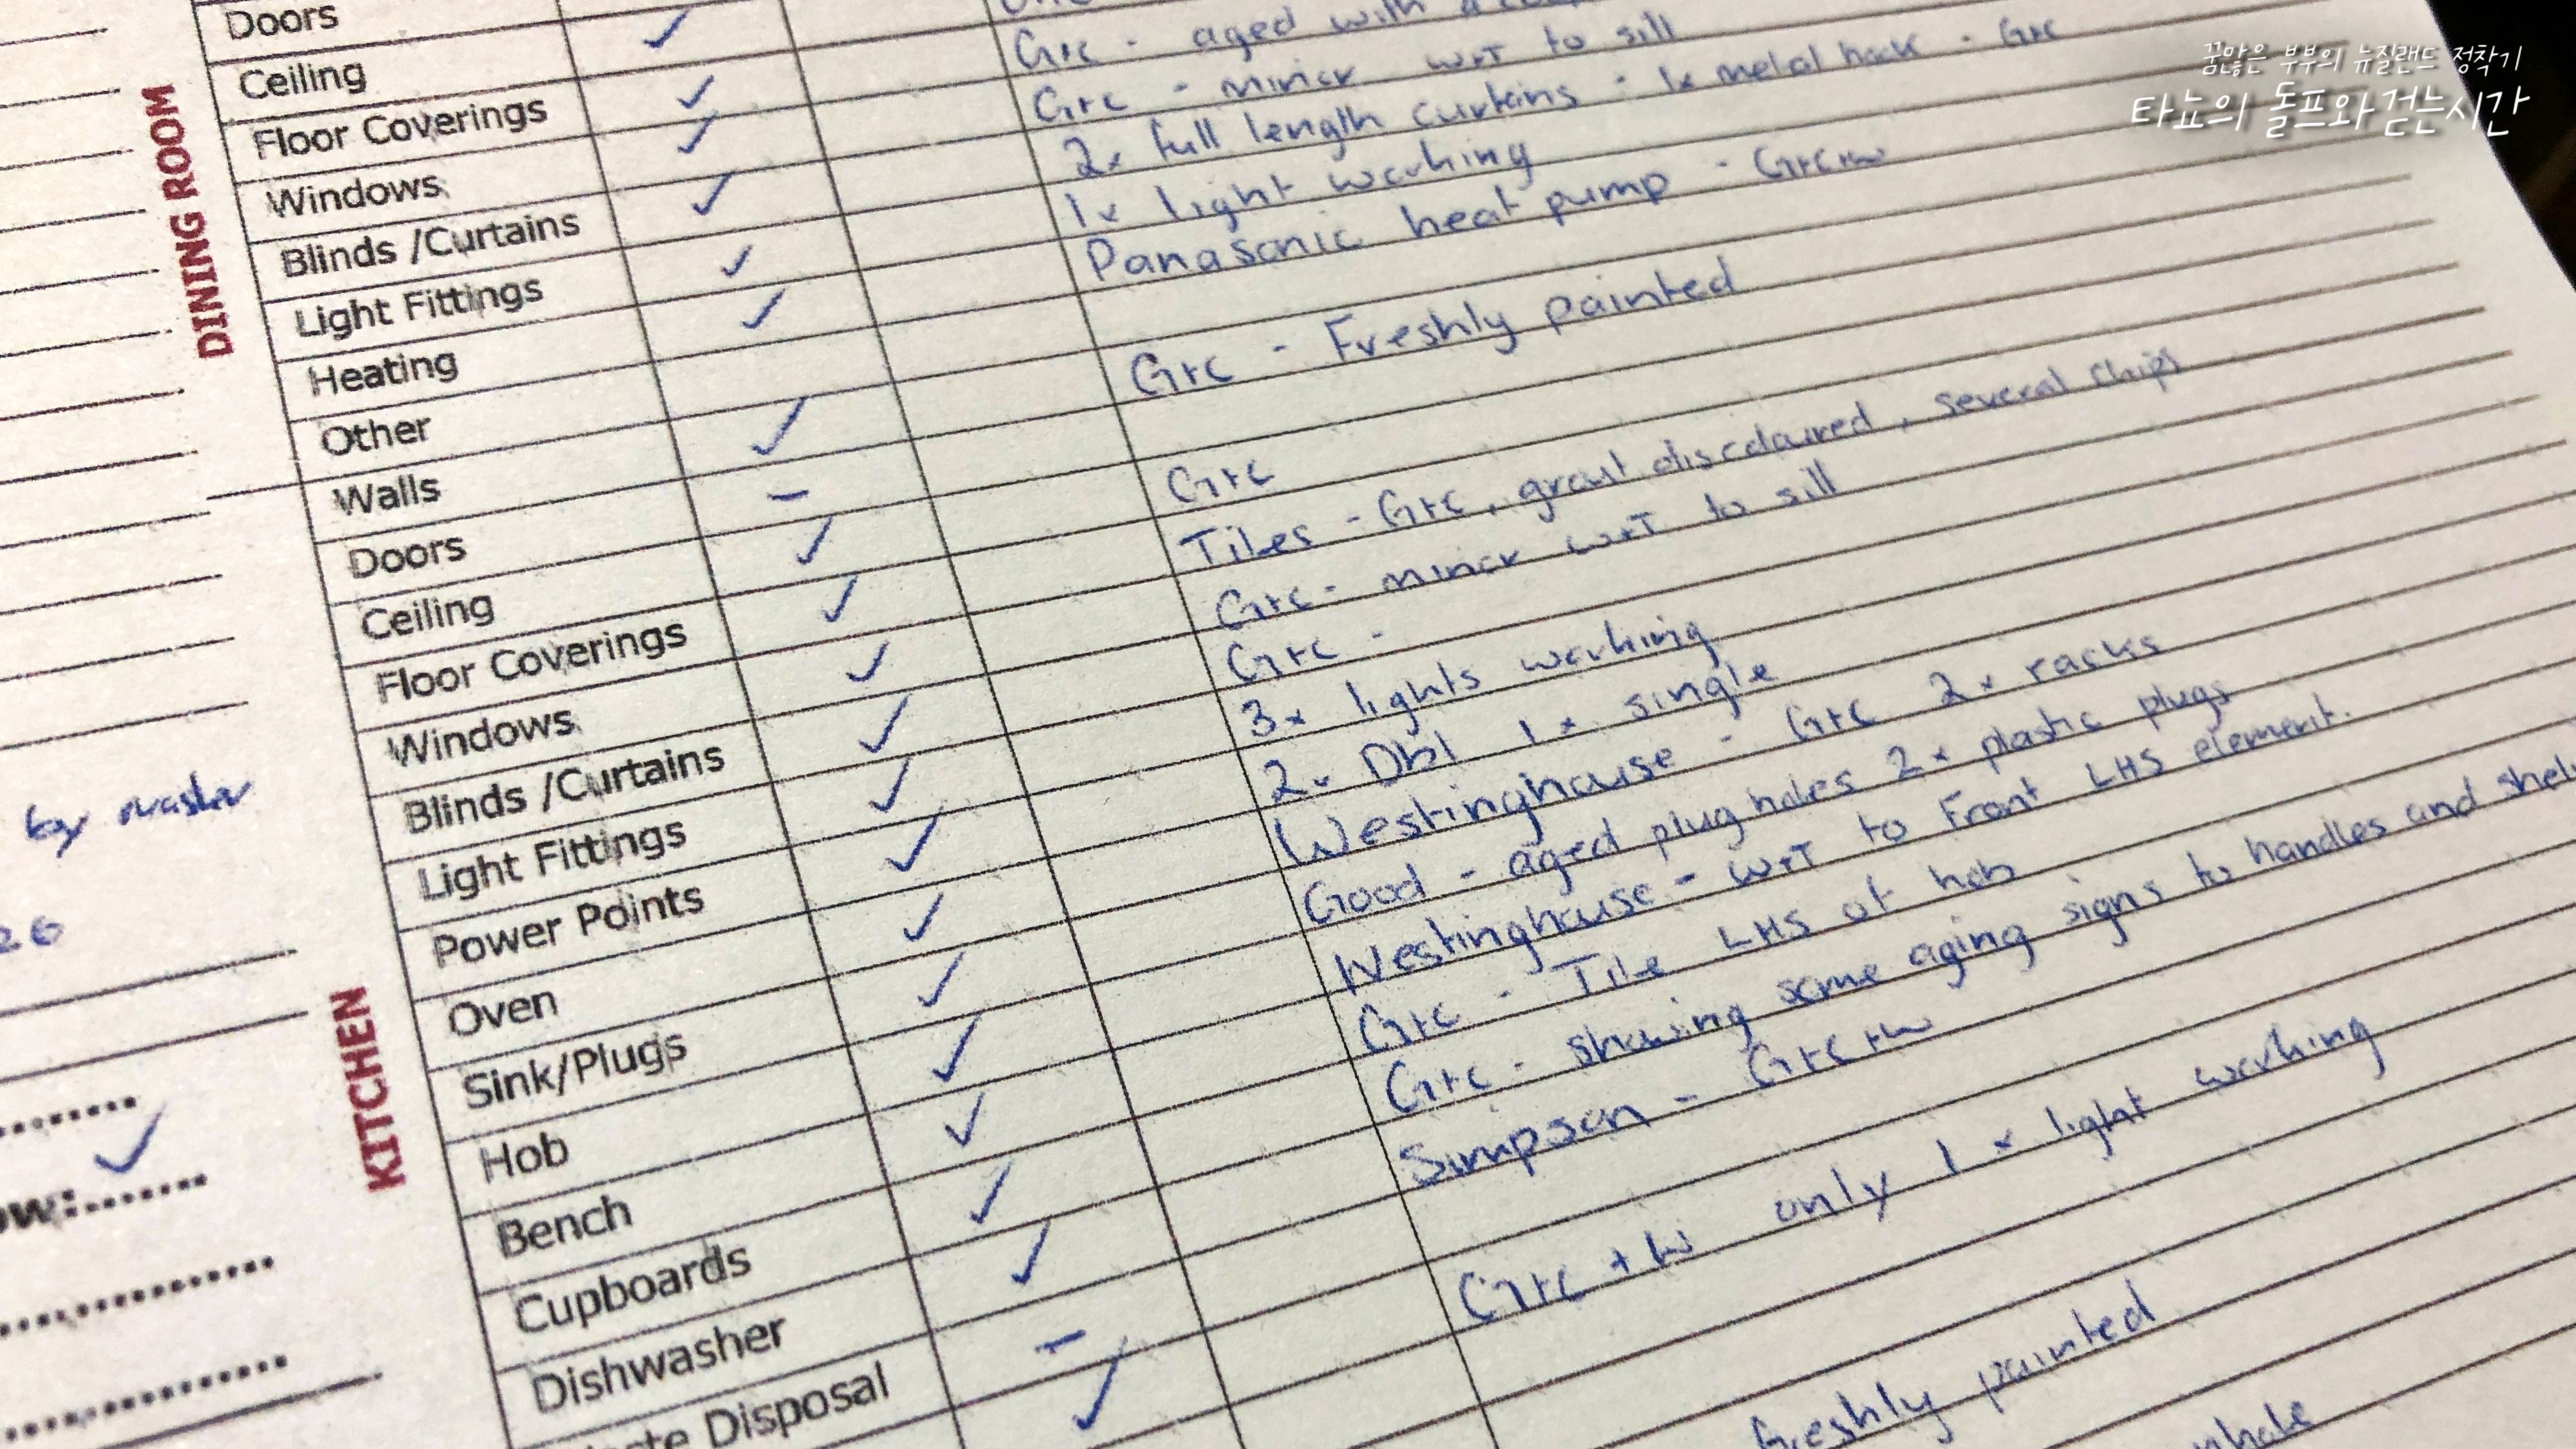 꿈많은 부부의 뉴질랜드 정착기
타뇨의 돌프와 걷는시간
DINING ROOM
Doors
Ceiling ✓ G+C - aged with a
Floor Coverings ✓ G+C - minor W+T to sill
Windows ✓ 2x full length curtains - 1x metal hook - G+C
Blinds /Curtains ✓ 1x light working
Light Fittings ✓ Panasonic heat pump - G+C+W
Heating ✓
Other G+C - Freshly painted
Walls ✓
Doors - G+C
Ceiling ✓ Tiles - G+C, grout discoloured, several chips
Floor Coverings ✓ G+C - minor W+T to sill
Windows ✓ G+C -
Blinds /Curtains ✓ 3x lights working
Light Fittings ✓ 2x Dbl 1x single
Power Points ✓ Westinghouse - G+C 2x racks
Oven ✓ Good - aged plug holes 2x plastic plugs
Sink/Plugs ✓ Westinghouse - W+T to Front LHS element.
Hob ✓ G+C - Tile LHS of hob
Bench ✓ G+C - showing some aging signs to handles and
Cupboards ✓ Simpson - G+C+W
Dishwasher ✓
Disposal - G+C + W only 1x light working
✓
freshly painted
KITCHEN
by
26